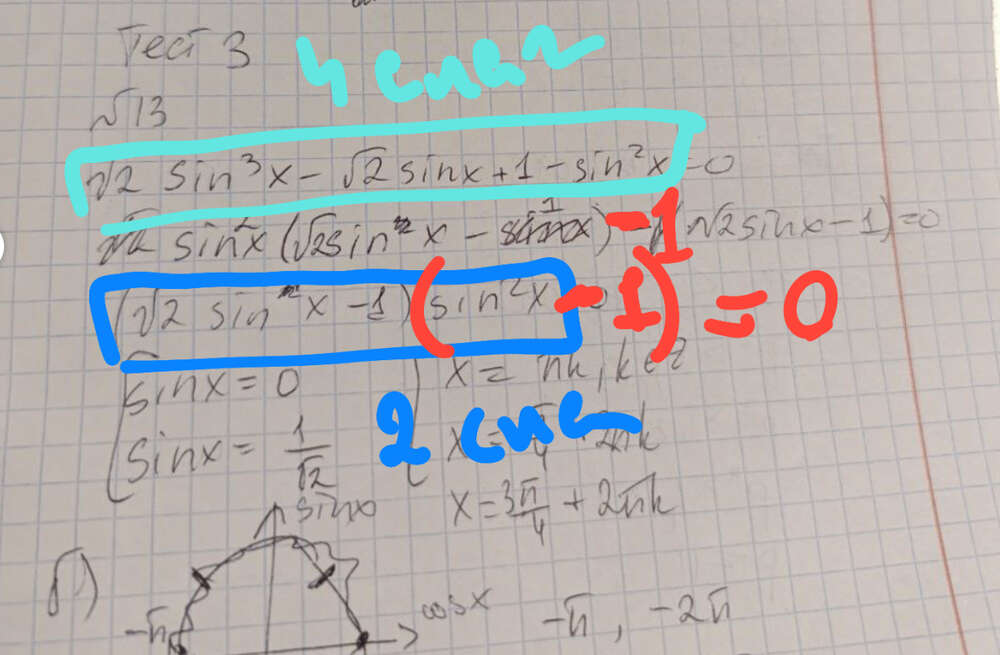 Тест 3
4 слаг
√13
√2 sin³x - √2 sinx + 1 - sin²x = 0
sin²x (√2 sin x - 1) - 1 (√2 sinx - 1) = 0
(√2 sin x - 1) (sin²x - 1) = 0
sinx = 0 x = πk, k ∈ Z
2 слаг
sinx = 1/√2 x = π/4 + 2πk
x = 3π/4 + 2πk
sinx
б)
cosx
-π
-π, -2π